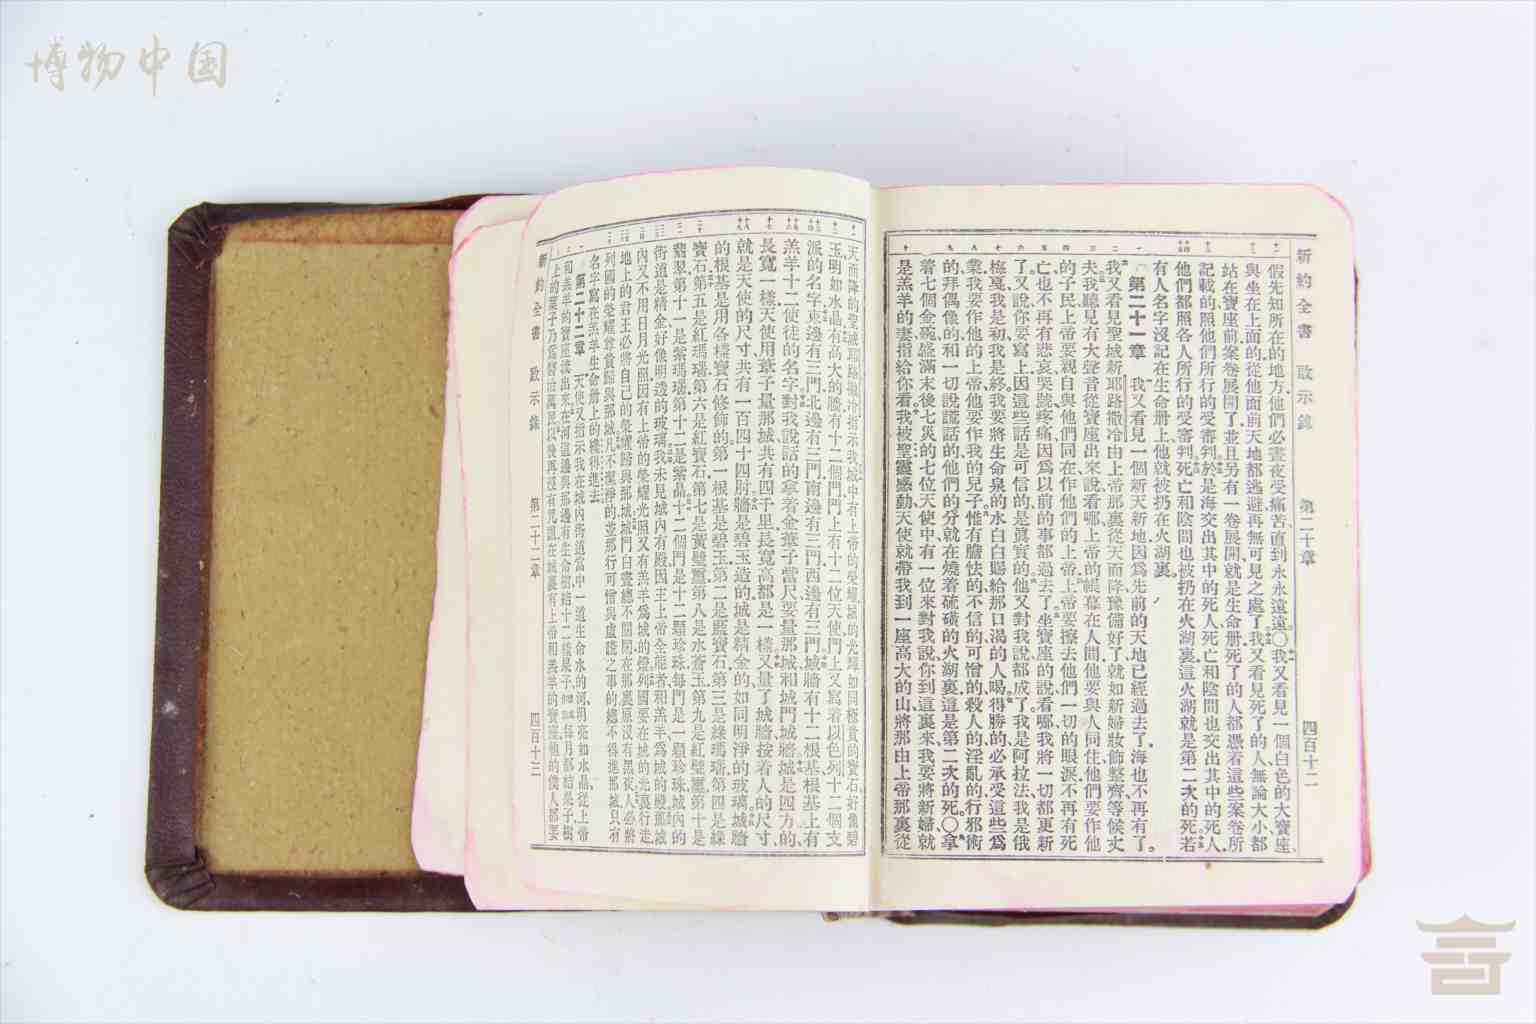 博物中国
新約全書 啟示錄 第二十章 四百十二
假先知所在的地方他們必晝夜受痛苦、直到永永遠遠。○我又看見一個白色的大寶座、
與坐在上面的從他面前天地都逃避再無可見之處了我又看見死了的人無論大小都
站在寶座前案卷展開了並且另有一卷展開就是生命册死了的人都憑着這些案卷所
記載的照他們所行的受審判於是海交出其中的死人死亡和陰間也交出其中的死人
他們都照各人所行的受審判死亡和陰間也被扔在火湖裏這火湖就是第二次的死若
有人名字沒記在生命册上他就被扔在火湖裏。
第二十一章 我又看見一個新天新地因爲先前的天地已經過去了海也不再有了。
我又看見聖城新耶路撒冷由上帝那裏從天而降豫備好了就如新婦妝飾整齊等候丈
夫我聽見有大聲音從寶座出來說看哪上帝的帳幕在人間他要與人同住他們要作他
的子民上帝要親自與他們同在作他們的上帝上帝要擦去他們一切的眼淚不再有死
亡也不再有悲哀哭號疼痛因爲以前的事都過去了坐寶座的說看哪我將一切都更新
了又說你要寫上因這些話是可信的是眞實的他又對我說都成了我是阿拉法我是俄
梅戛我是初我是終我要將生命泉的水白白賜給那口渴的人喝得勝的必承受這些爲
業我要作他的上帝他要作我的兒子惟有膽怯的不信的可憎的殺人的淫亂的行邪術
的拜偶像的和一切說謊話的他們的分就在燒着硫磺的火湖裏這是第二次的死。○拿
着七個金碗盛滿末後七災的七位天使中有一位來對我說你到這裏來我要將新婦就
是羔羊的妻指給你看我被聖靈感動天使就帶我到一座高大的山將那由上帝那裏從
天而降的聖城耶路撒冷指示我城中有上帝的榮耀城的光輝如同極貴的寶石好像碧
玉明如水晶有高大的牆有十二個門門上有十二位天使門上又寫着以色列十二個支
派的名字東邊有三門北邊有三門南邊有三門西邊有三門城牆有十二根基根基上有
羔羊十二使徒的名字對我說話的拿着金葦子當尺要量那城和城門城牆城是四方的
長寬一樣天使用葦子量那城共有四千里長寬高都是一樣又量了城牆按着人的尺寸
就是天使的尺寸共有一百四十四肘牆是碧玉造的城是精金的如同明淨的玻璃城牆
的根基是用各樣寶石修飾的第一根基是碧玉第二是藍寶石第三是綠瑪瑙第四是綠
寶石第五是紅瑪瑙第六是紅寶石第七是黃璧璽第八是水蒼玉第九是紅璧璽第十是
翡翠第十一是紫瑪瑙第十二是紫晶十二個門是十二顆珍珠每門是一顆珍珠城內的
街道是精金好像明透的玻璃我未見城內有殿因主上帝全能者和羔羊爲城的殿那城
內又不用日月光照因有上帝的榮耀光照又有羔羊爲城的燈列國要在城的光裏行走
地上的君王必將自己的榮耀歸與那城城門白晝總不關閉在那裏原沒有黑夜人必將
列國的榮耀尊貴歸與那城凡不潔淨的並那行可憎與虛謊之事的總不得進那城只有
名字寫在羔羊生命册上的纔得進去
第二十二章 天使又指示我在城內街道當中一道生命水的河明亮如水晶從上帝
和羔羊的寶座流出來在河這邊與那邊有生命樹結十二樣果子每月都結果子樹
上的葉子乃爲醫治萬民以後再沒有咒詛在城裏有上帝和羔羊的寶座他的僕人都要
新約全書 啟示錄 第二十二章 四百十三